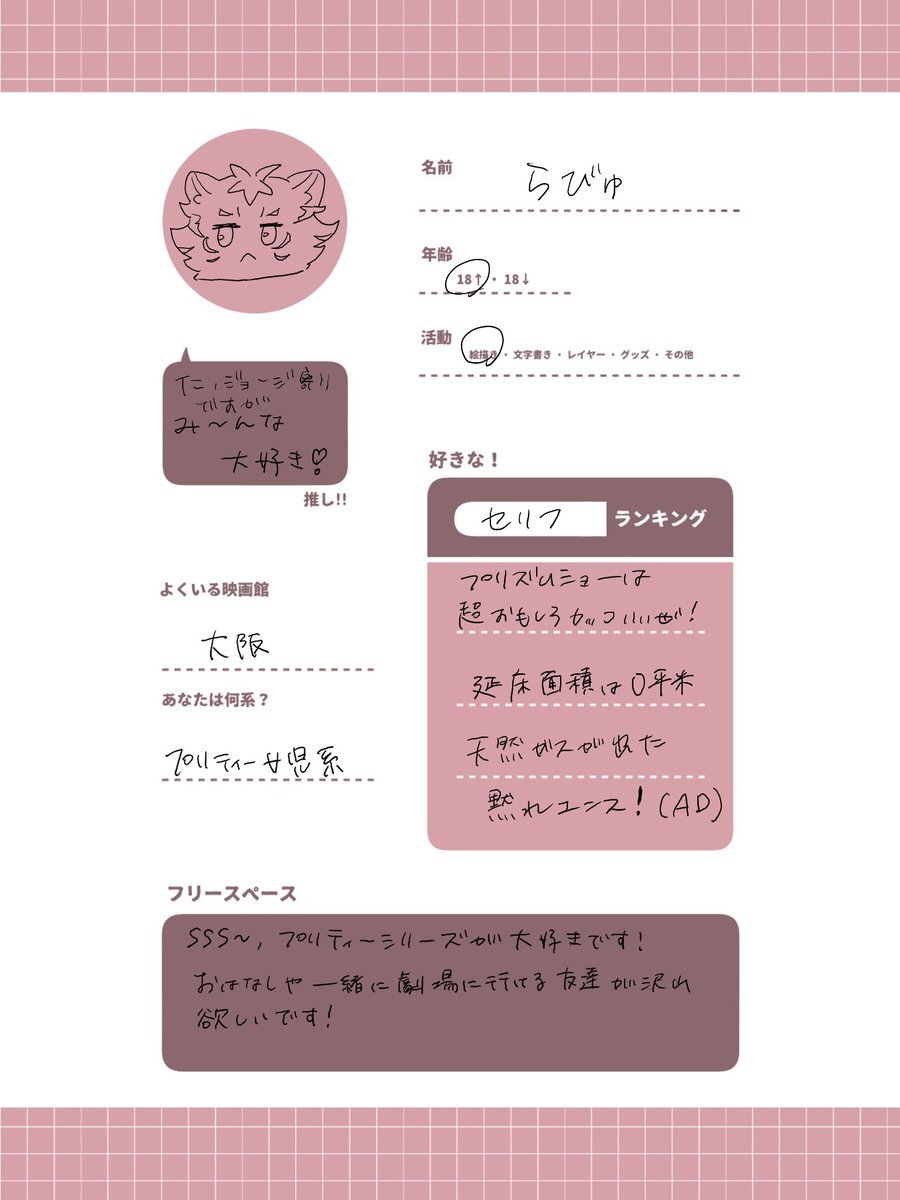 名前
らびゅ
年齢
18↑・18↓
活動
絵描き・文字書き・レイヤー・グッズ・その他
仁、ジョージ寄り
ですが
み〜んな
大好き♡
推し!!
よくいる映画館
大阪
あなたは何系？
プリティー女児系
好きな！
セリフ ランキング
プリズムショーは
超おもしろカッコいいぜ!
延床面積は0平米
天然ガスが出た
黙れユンス!(AD)
フリースペース
SSS〜,プリティーシリーズが大好きです!
おはなしや一緒に劇場に行ける友達が沢山
欲しいです!